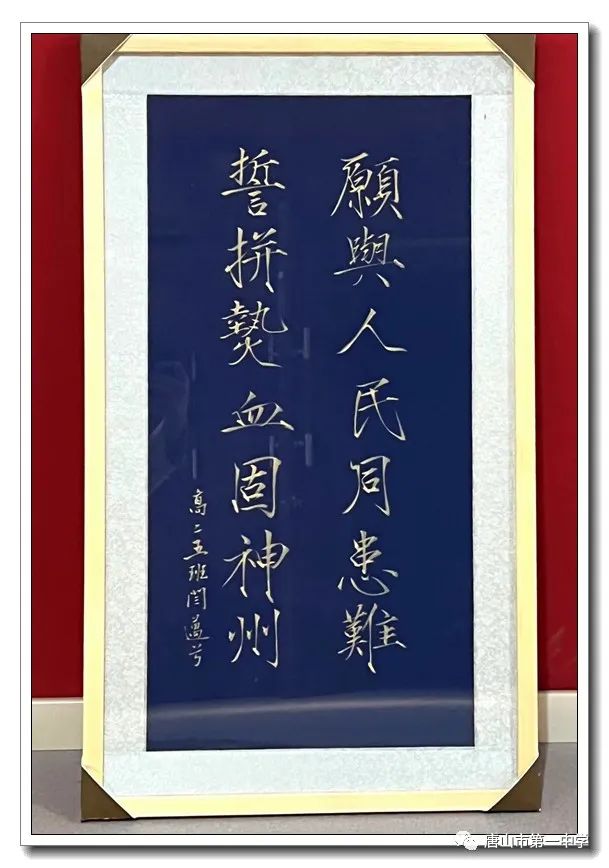 願與人民同患難
誓拼熱血固神州
高二五班闫
唐山市第一中学